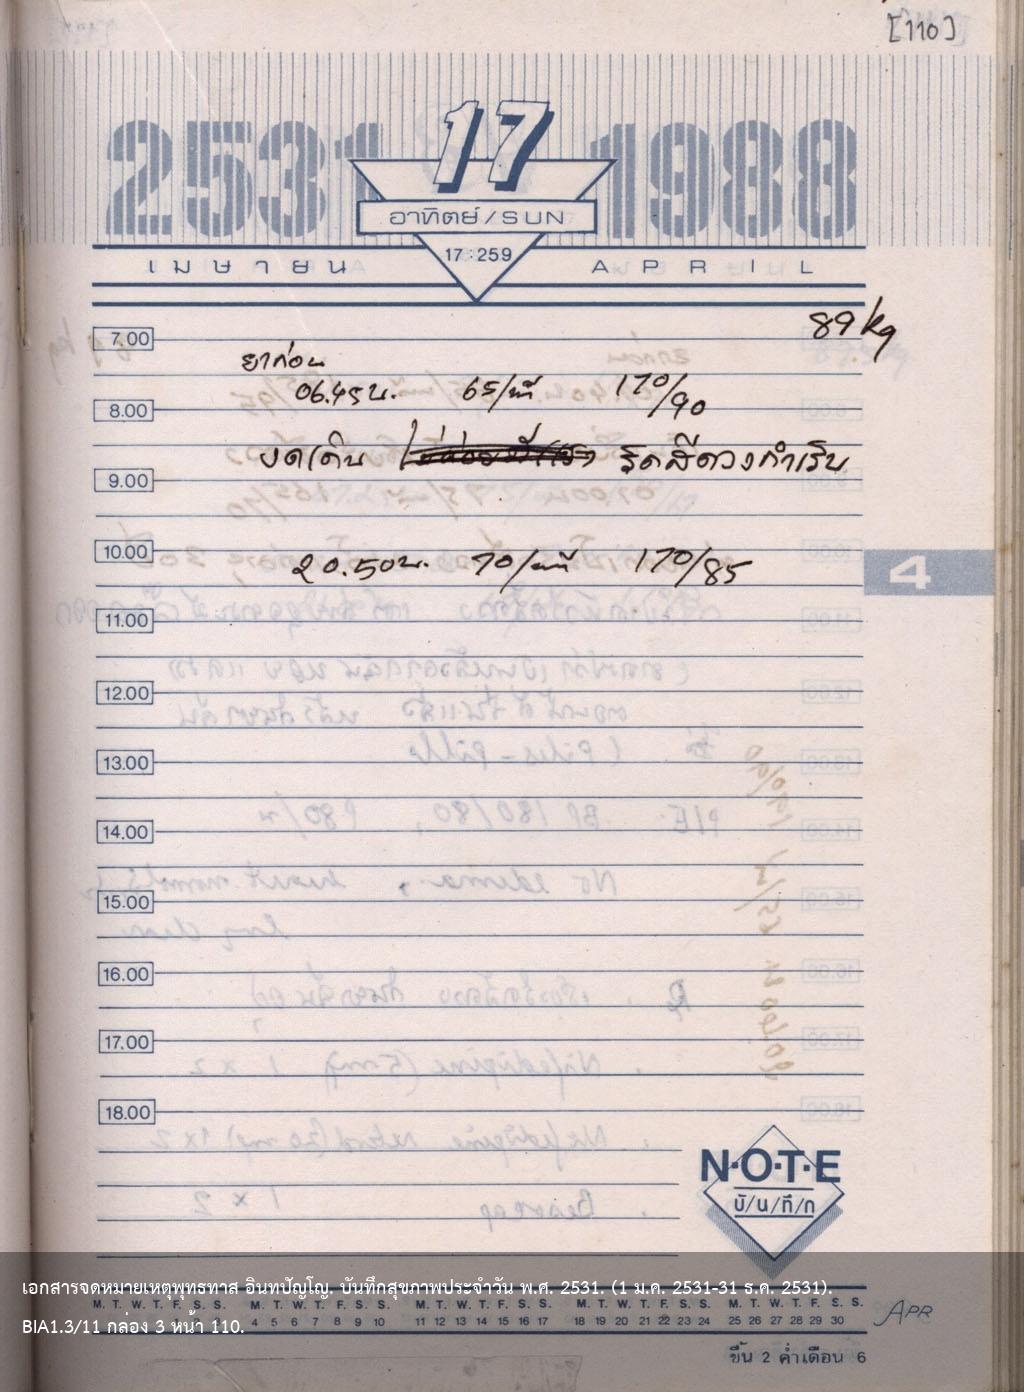 [110]
2531 17 1988
อาทิตย์/SUN
17:259
เมษายน APRIL
89 kg
7.00
ยาก่อน
06.45 น. 65/นาที 170/90
8.00
งดเดิน ริดสีดวงกำเริบ
9.00
10.00
20.50 น. 70/นาที 170/85
4
11.00
12.00
13.00
14.00
15.00
16.00
17.00
18.00
N·O·T·E
บั/น/ทึ/ก
เอกสารจดหมายเหตุพุทธทาส อินทปัญโญ. บันทึกสุขภาพประจำวัน พ.ศ. 2531. (1 ม.ค. 2531-31 ธ.ค. 2531).
M. T. W. T. F. S. S. M. T. W. T. F. S. S. M. T. W. T. F. S. S. M. T. W. T. F. S. S. M. T. W. T. F. S. S.
1 2 3 4 5 6 7 8 9 10 11 12 13 14 15 16 17 18 19 20 21 22 23 24 25 26 27 28 29 30
APR
BIA1.3/11 กล่อง 3 หน้า 110.
ขึ้น 2 ค่ำเดือน 6